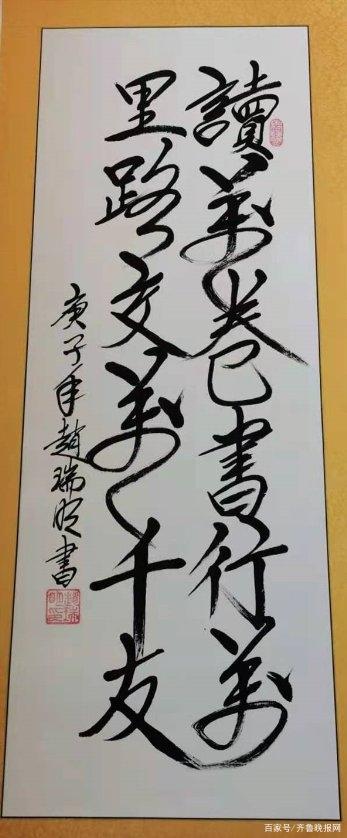 讀萬卷書行萬
里路交萬千友
庚子年趙瑞明書
百家号/齐鲁晚报网